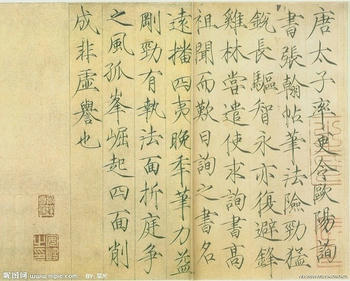 唐太子率更令歐陽詢
書張翰帖筆法險勁猛
銳長驅智永亦復避鋒
雞林嘗遣使求詢書高
祖聞而歎曰詢之書名
遠播四夷晚年筆力益
剛勁有執法面折庭爭
之風孤峯崛起四面削
成非虛譽也
昵图网 www.nipic.com BY: